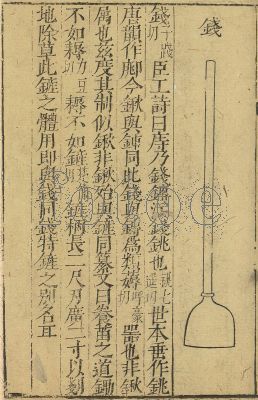 錢
錢子踐切臣工詩曰庤乃錢鎛注錢銚也七遥切世本垂作銚
唐韻作今鍬與鍤同此錢與鎛為類薅呼豪切器也非鍬
屬也茲度其制似鍬非鍬殆與鏟同纂文曰養苗之道鋤
不如耨耨不如鏟鏟柄長二尺刃廣二寸以剗
地除草此鏟之體用即與錢同錢特鏟之別名耳